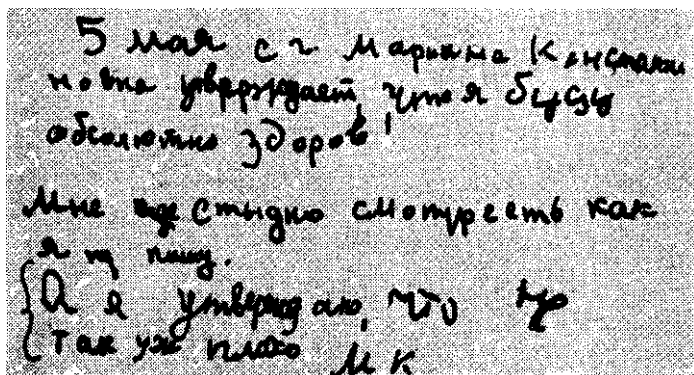 5 мая с г Марьяна Константи
новна утверждает, что я буду
абсолютно здоров!
Мне стыдно смотреть как
я пишу.
А я утверждаю, что не
так уж плохо МК